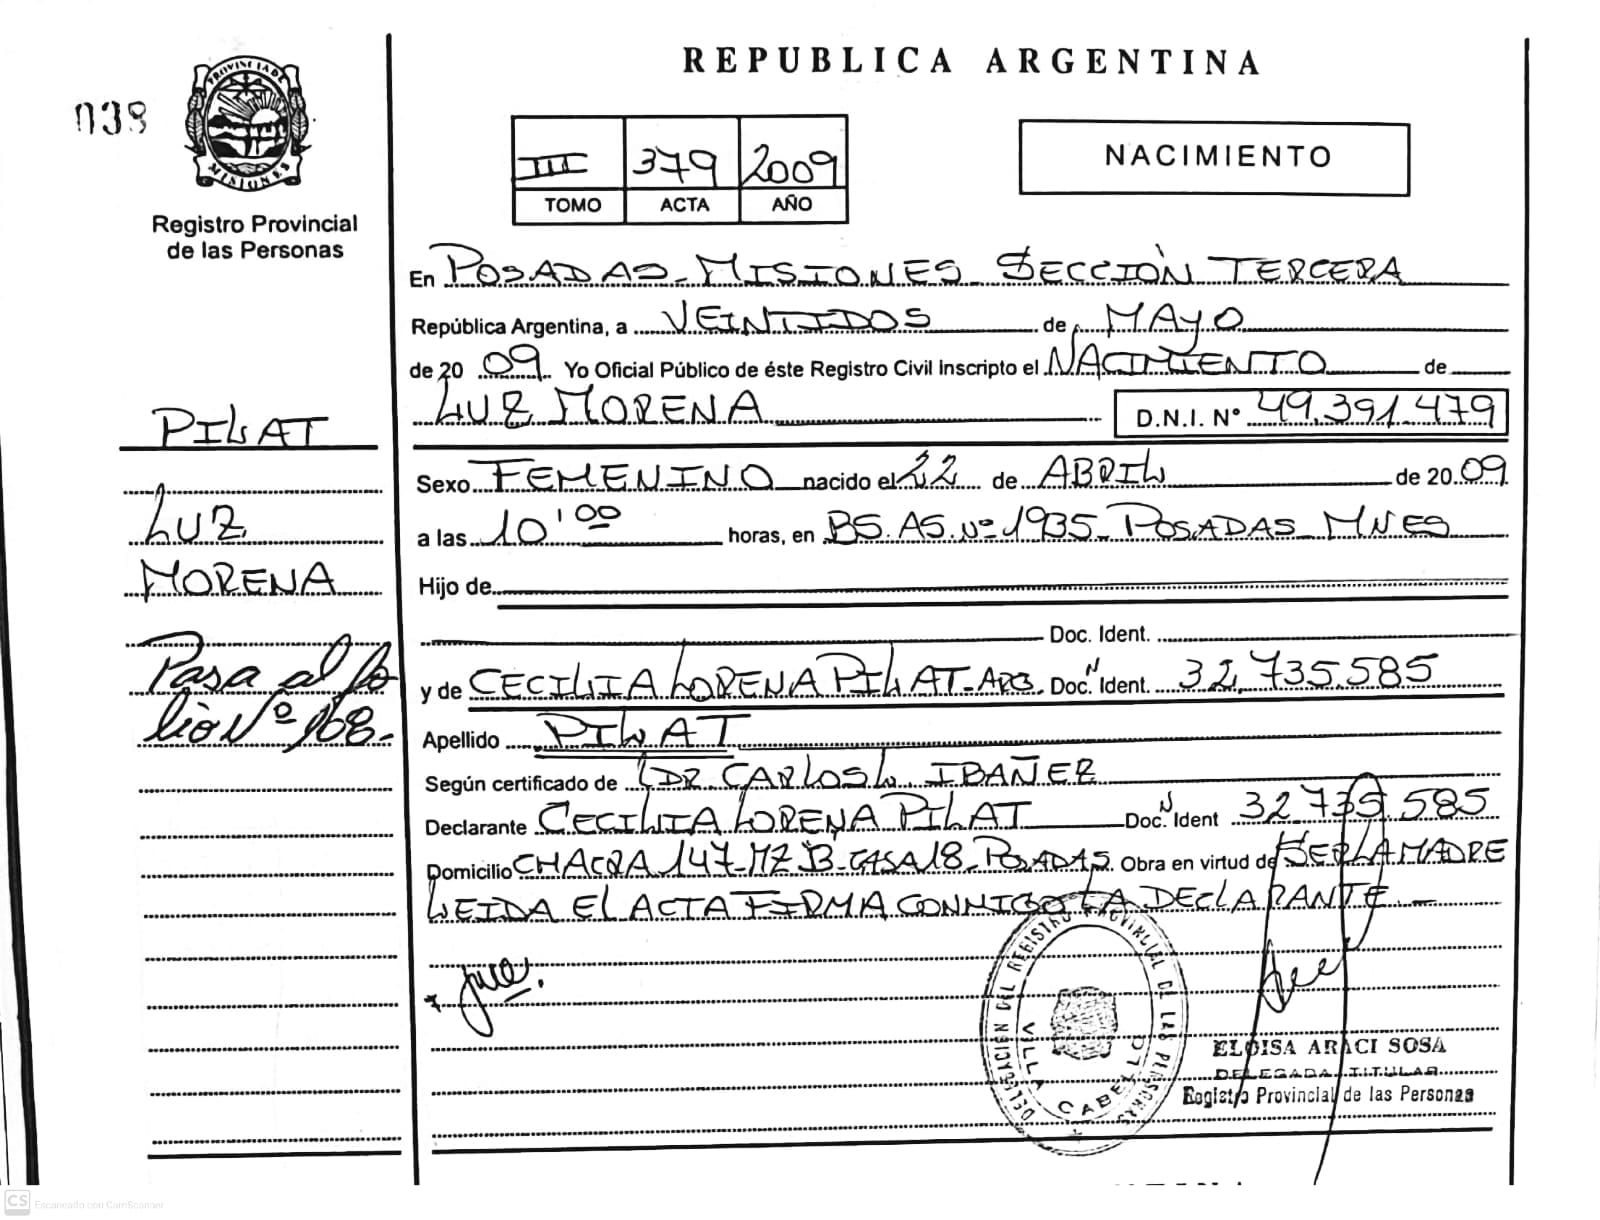 REPUBLICA ARGENTINA
038
PROVINCIA DE
MISIONES
Registro Provincial
de las Personas
III 379 2009
TOMO ACTA AÑO
NACIMIENTO
En POSADAS-MISIONES SECCIÓN TERCERA
República Argentina, a VEINTIDOS de MAYO
de 20 09 Yo Oficial Público de éste Registro Civil Inscripto el NACIMIENTO de
LUZ MORENA D.N.I. N° 49.391.479
PILAT
LUZ
MORENA
Pasa al fo
lio Nº 168.
Sexo FEMENINO nacido el 22 de ABRIL de 20 09
a las 10'00 horas, en BS.AS.Nº 1935-POSADAS MNES
Hijo de
Doc. Ident.
y de CECILIA LORENA PILAT-ARG. Doc. N Ident. 32.735.585
Apellido PILAT
Según certificado de DR. CARLOS L. IBAÑEZ
Declarante CECILIA LORENA PILAT Doc. N Ident 32.735.585
Domicilio CHACRA 147-MZ B-CASA 18-POSADAS. Obra en virtud de SER LA MADRE
LEIDA EL ACTA FIRMA CONMIGO LA DECLARANTE.-
DELEGACION DEL REGISTRO PROVINCIAL DE LAS PERSONAS
VILLA CABELLO
ELOISA ARACI SOSA
DELEGADA TITULAR
Registro Provincial de las Personas
CS Escaneado con CamScanner